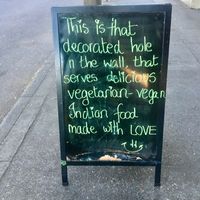 This is that
decorated hole
in the wall, that
serves delicious
vegetarian-vegan
Indian food
made with LOVE